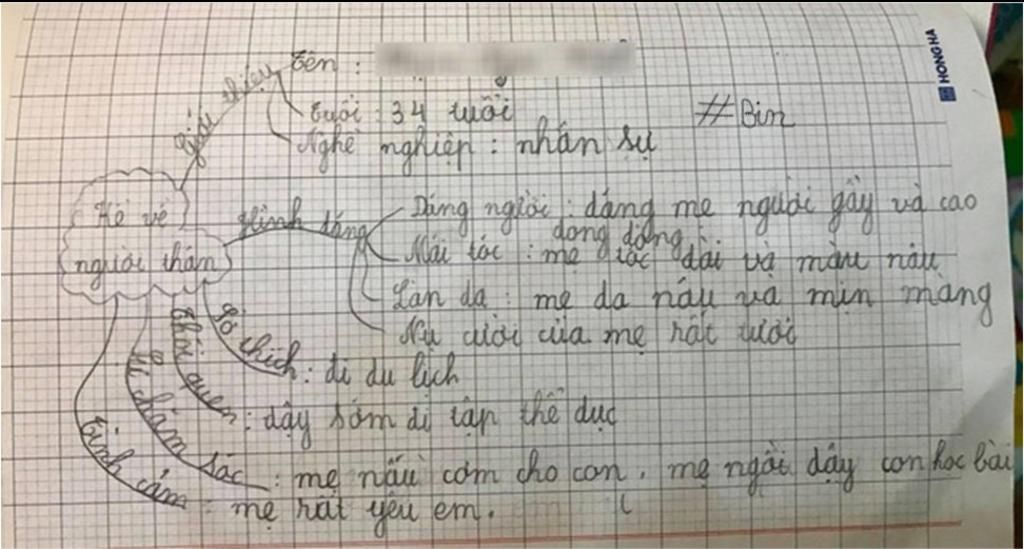 Giới thiệu
Tên :
Tuổi : 34 tuổi
#Bin
Nghề nghiệp : nhân sự
HONG HA
Kể về
người thân
Hình dáng
Dáng người : dáng mẹ người gầy và cao
dong dỏng
Mái tóc : mẹ tóc dài và màu nâu
Làn da : mẹ da nâu và mịn màng
Nụ cười của mẹ rất tươi
Sở thích : đi du lịch
Thói quen : dậy sớm đi tập thể dục
chăm sóc : mẹ nấu cơm cho con, mẹ ngồi dậy con học bài
Tình cảm : mẹ rất yêu em.